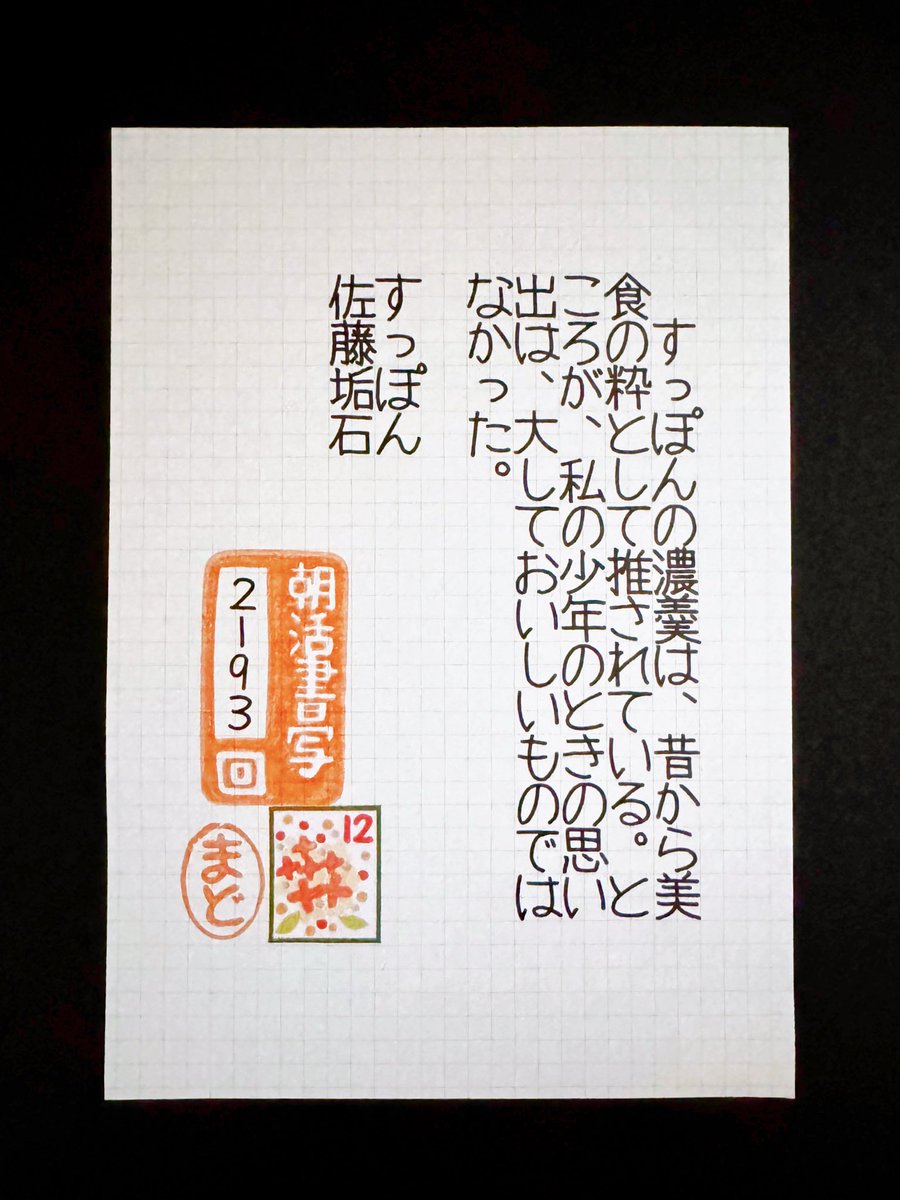 すっぽんの濃羹は、昔から美
食の粋として推されている。と
ころが、私の少年のときの思い
出は、大しておいしいものでは
なかった。
すっぽん
佐藤垢石
朝活書写
2193
回
12
まど